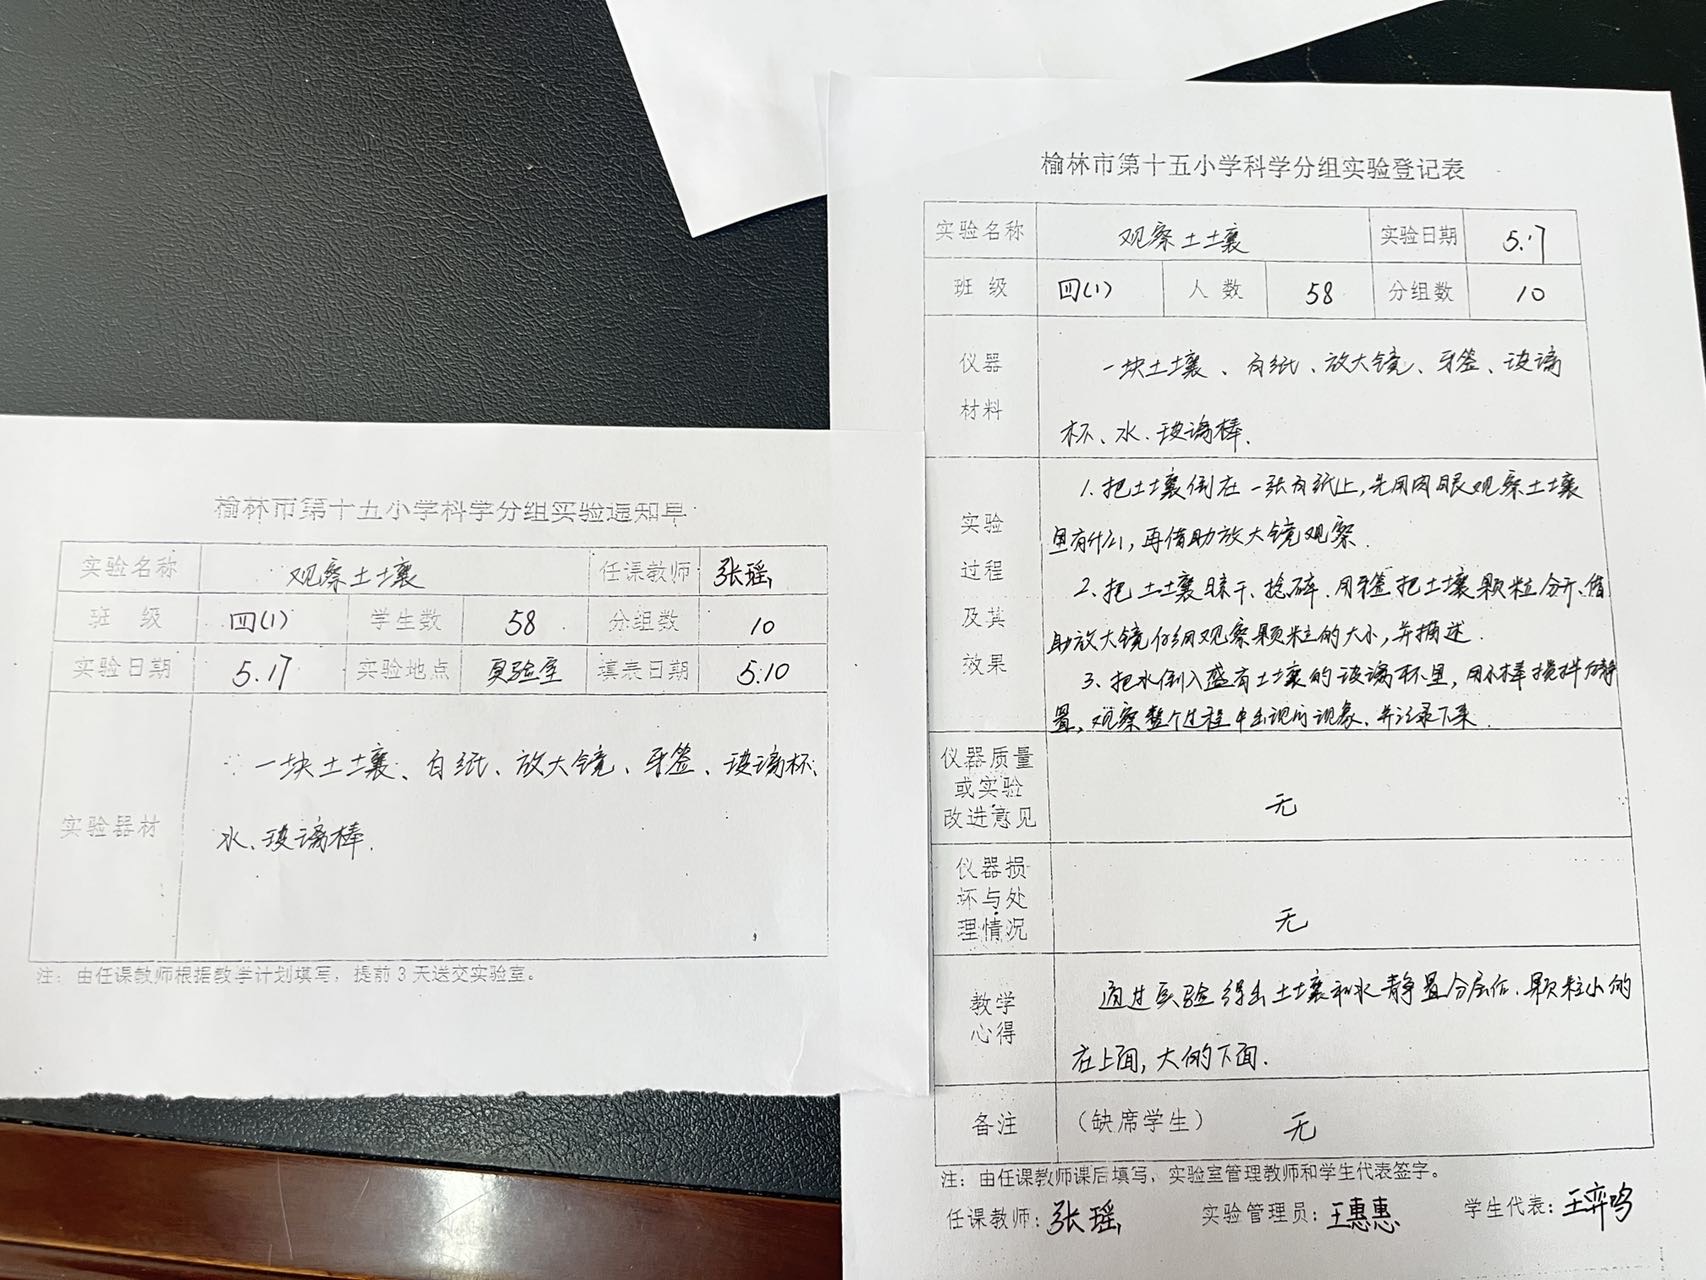 榆林市第十五小学科学分组实验通知单
实验名称 观察土壤 任课教师 张瑶
班 级 四(1) 学生数 58 分组数 10
实验日期 5.17 实验地点 实验室 填表日期 5.10
实验器材
一块土壤、白纸、放大镜、牙签、玻璃杯、
水、玻璃棒.
注：由任课教师根据教学计划填写，提前3天送交实验室。
榆林市第十五小学科学分组实验登记表
实验名称 观察土壤 实验日期 5.17
班 级 四(1) 人 数 58 分组数 10
仪器
材料
一块土壤、白纸、放大镜、牙签、玻璃
杯、水、玻璃棒.
实验
过程
及其
效果
1.把土壤倒在一张白纸上,先用肉眼观察土壤
里有什么,再借助放大镜观察.
2、把土壤晾干、捻碎.用牙签把土壤颗粒分开、借
助放大镜仔细观察颗粒的大小,并描述.
3、把水倒入盛有土壤的玻璃杯里,用木棒搅拌后静
置,观察整个过程中出现的现象、并记录下来.
仪器质量
或实验
改进意见
无
仪器损
坏与处
理情况
无
教学
心得
通过实验得出土壤和水静置分层后、颗粒小的
在上面,大的下面.
备注 （缺席学生） 无
注：由任课教师课后填写，实验室管理教师和学生代表签字。
任课教师：张瑶 实验管理员：王惠惠 学生代表：王弈鸣